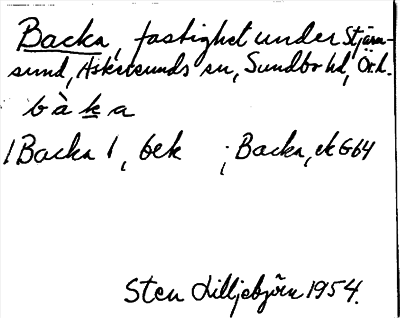 Backa, fastighet under Stjärn-
sund, Askersunds sn, Sundbo hd, Ör.l.
b à k a
/Backa /, bek ; Backa, ek G64
Sten Lilljebjörn 1954.